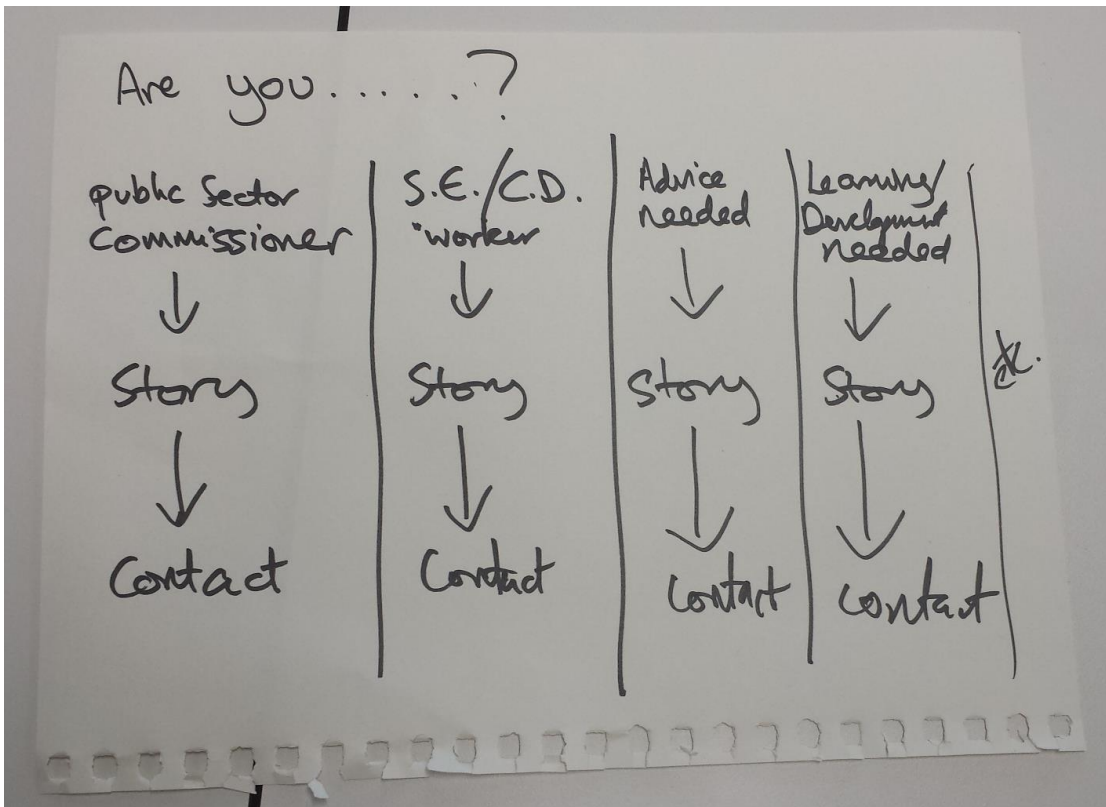 Are you......?
public Sector
Commissioner
↓
Story
↓
Contact
S.E./C.D.
"worker
↓
Story
↓
Contact
Advice
needed
↓
Story
↓
Contact
Learning/
Development
needed
↓
Story
↓
Contact
etc.